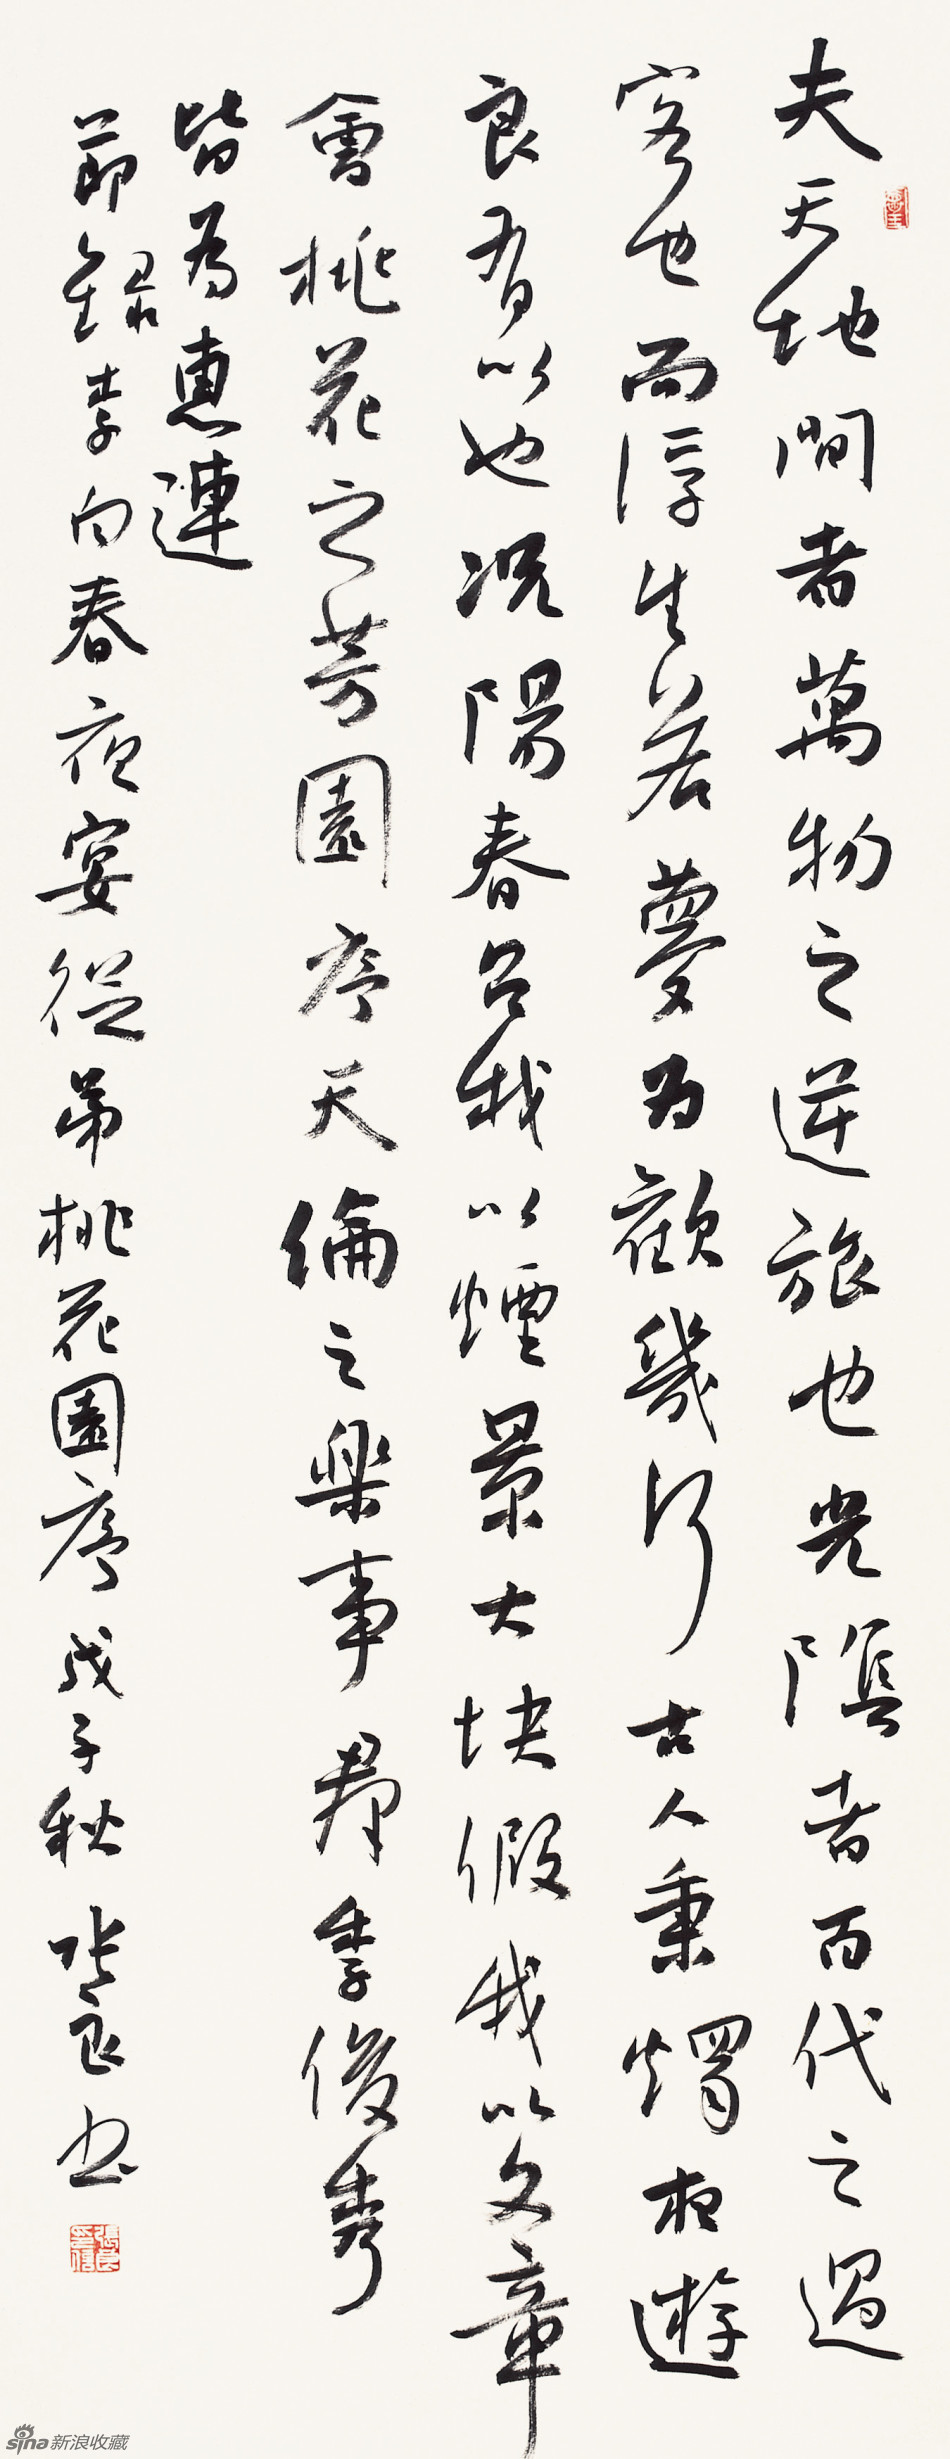 夫天地間者萬物之逆旅也光陰者百代之過
客也而浮生若夢為歡幾何古人秉燭夜遊
良有以也況陽春召我以煙景大塊假我以文章
會桃花之芳園序天倫之樂事群季俊秀
皆為惠連
節錄李白春夜宴從弟桃花園序戊子秋張良書
張良印信
sina新浪收藏